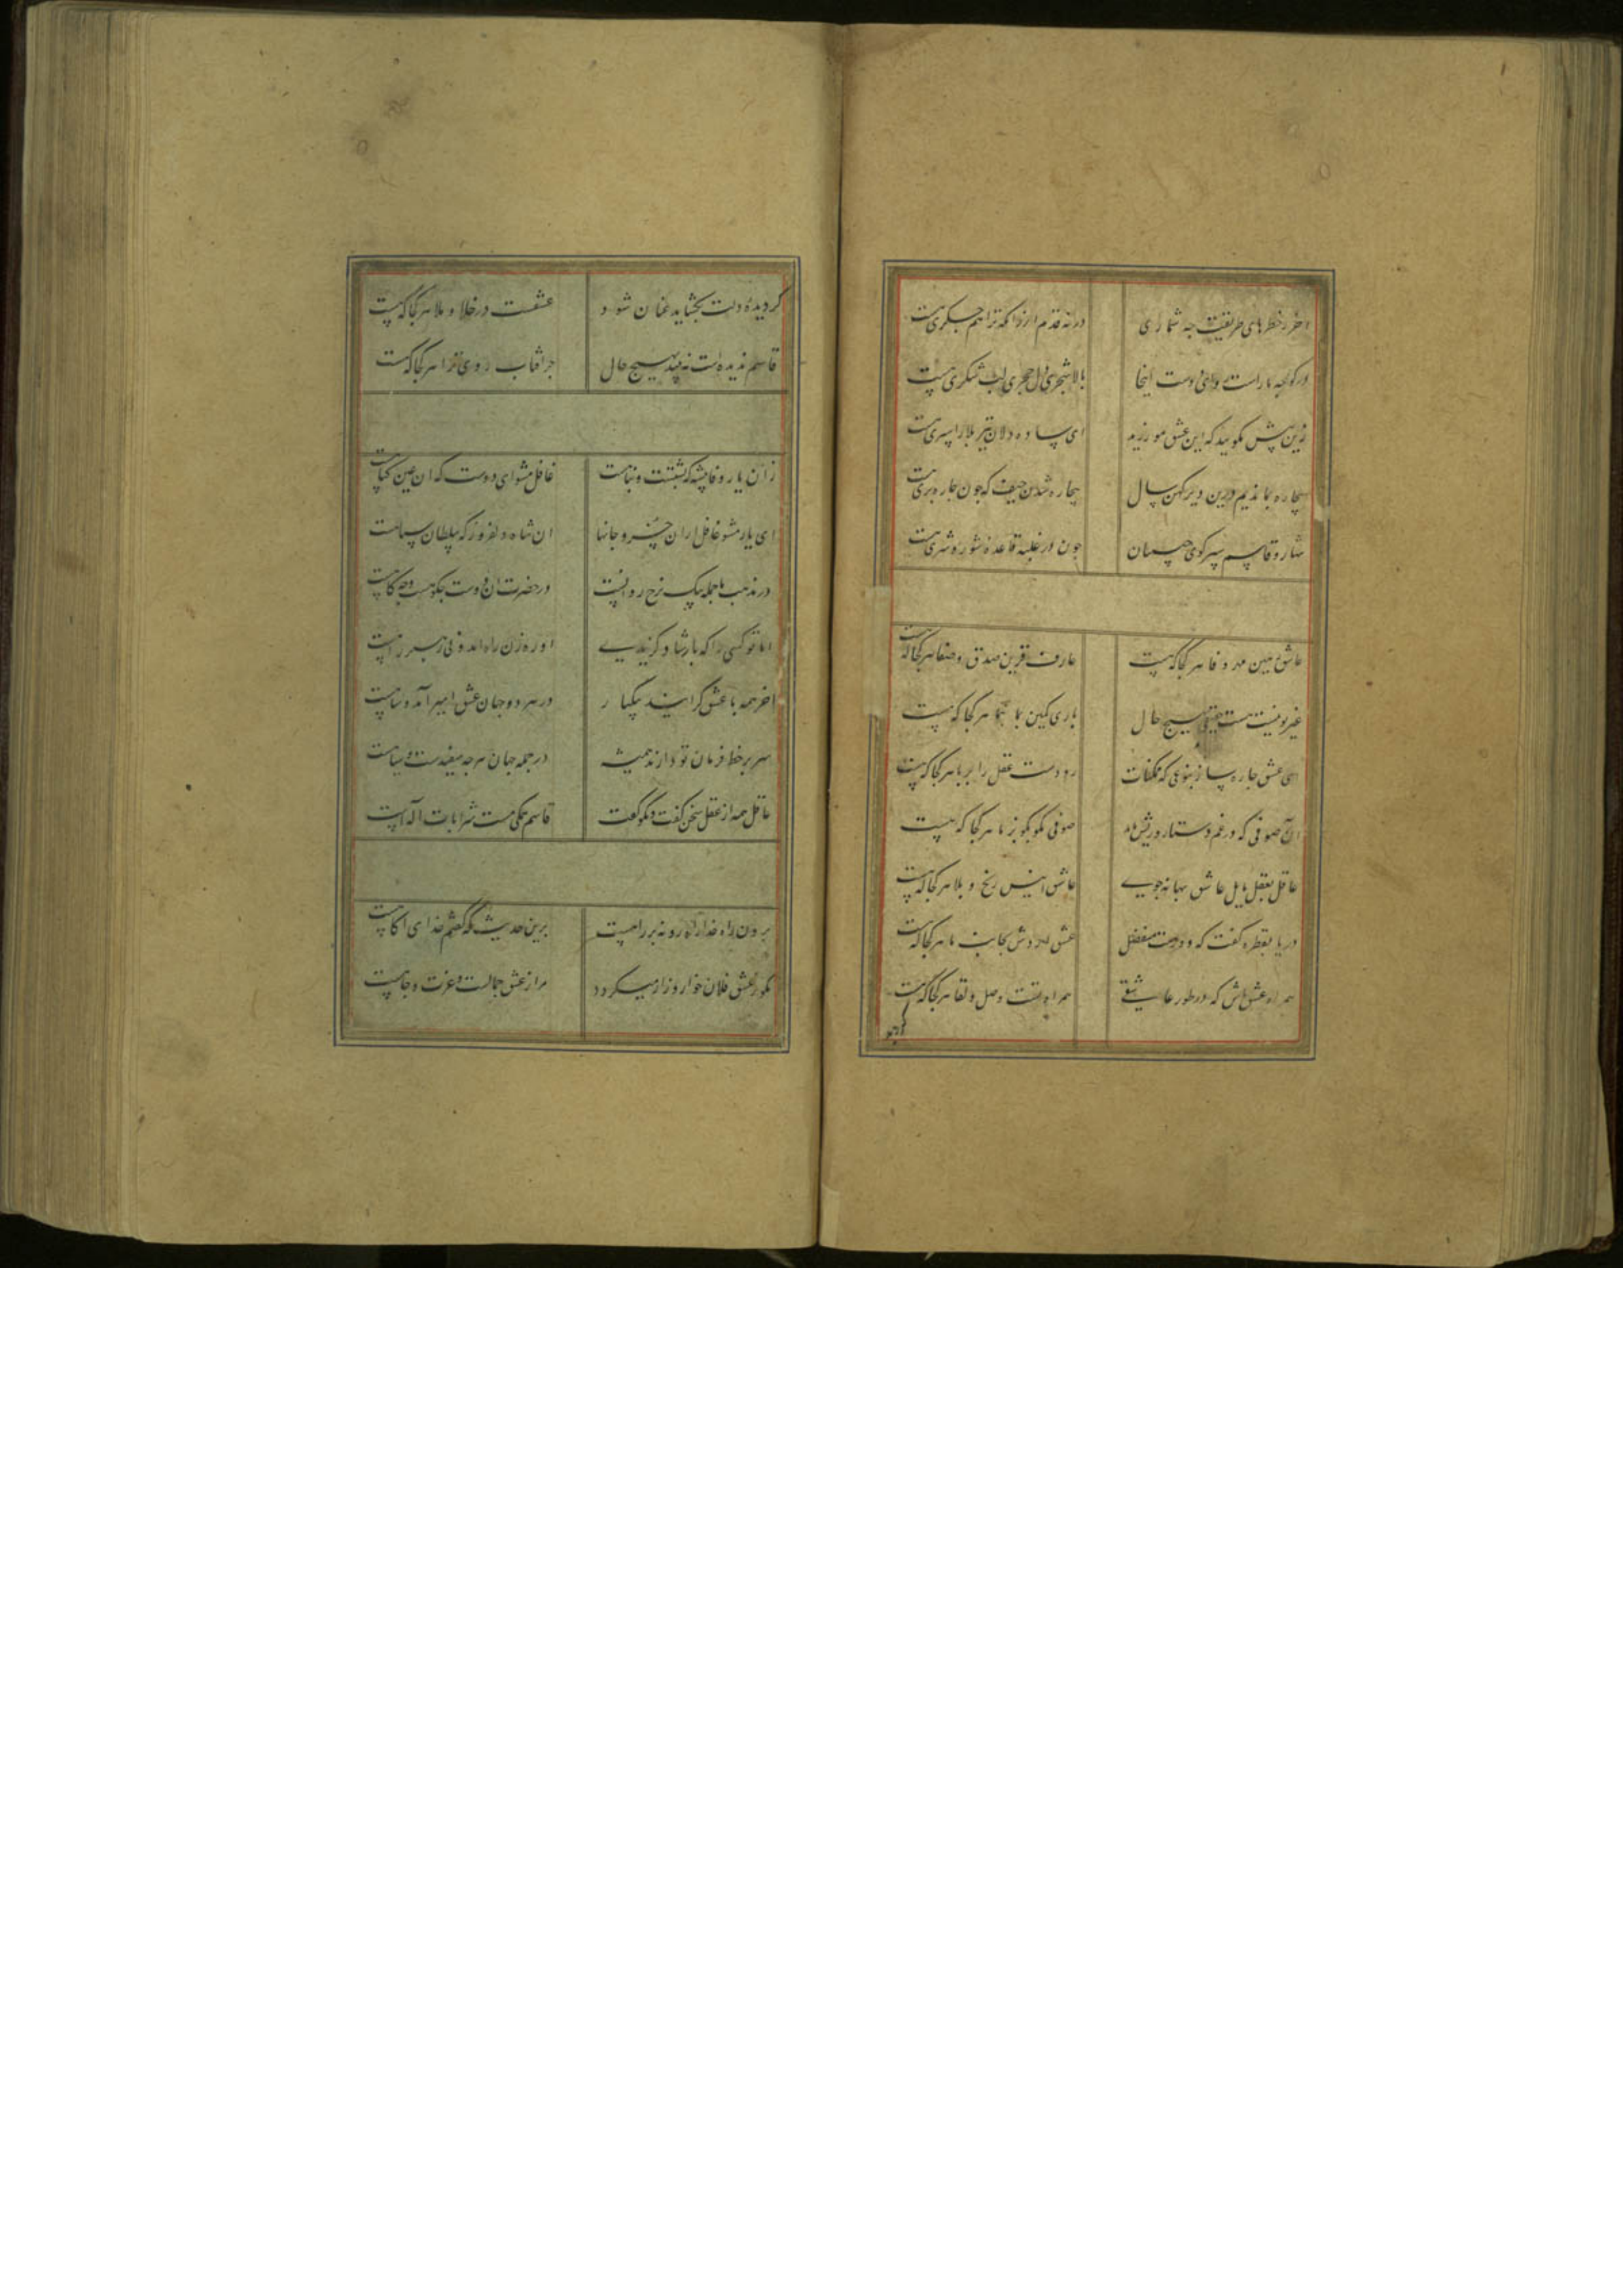 آخر ز خطرهای طریقت چه شماری
در نه قدم ار زانکه ترا هم جگری هست
در کوچه ما راست روای دوست اینجا
بالا شجری دل حجری لب شکری هست
زین پیش مگویید که این عشق مورزید
ای ساده دلان تیر بلا را سپری هست
بیچاره بماندیم درین دیر کهن سال
بیچاره شدن حیف که چون چاره بری هست
قاسم سر کوی
چون در غلبه قاعده شور و شری هست
عاشق مهر و وفا هر کجا که هست
عارف قرین صدق و صفا هر کجا که هست
غیر تو نیست هست حقیقی بهیچ حال
باری یقین بما هر کجا که هست
ای عشق چاره ساز
رو دست عقل را بر ما هر کجا که هست
آن صوفی که در غم دستار و ریش ماند
صوفی مگو بگو بز ما هر کجا که هست
عاقل بعقل مایل عاشق بهانه جوی
عاشق انیس رنج و بلا هر کجا که هست
دریا بقطره گفت که
عشق ما هر کجا که هست
همراه عشق باش که در طور عاشقی
همراه تست وصل و لقا هر کجا که هست
گر دیده دلت بگشاید عیان شود
عشقست در خلا و ملا هر کجا که هست
قاسم ندیده است نبیند بهیچ حال
جز آفتاب روی ترا هر کجا که هست
زان یار وفا پیشه که پشتست و پناهست
غافل مشو ای دوست که آن عین
ای یار مشو غافل از آن خسرو جانها
آن شاه دلفروز که سلطان سپاهست
در مذهب ما جمله بیک نرخ روانست
در حضرت آن دوست چه کوهست و چه کاهست
اما تو کسی را که بارشاد گزیدی
او ره زن راه آمد و نی رهبر راهست
آخر همه با عشق گرایند بیکبار
در هر دو جهان عشق امیر آمد و شاهست
سر بر خط فرمان تو دارند همیشه
در جمله جهان هر چه سفیدست و سیاهست
عاقل همه از عقل سخن گفت و نکو گفت
قاسم همگی مست شرابات آلهست
برون ز راه خدا راه رو نه بر راهست
برین حدیث که گفتم خدای آگاهست
مگو ز عشق فلان خوار و زار میگردد
مرا ز عشق جمالست و عزت و جاهست